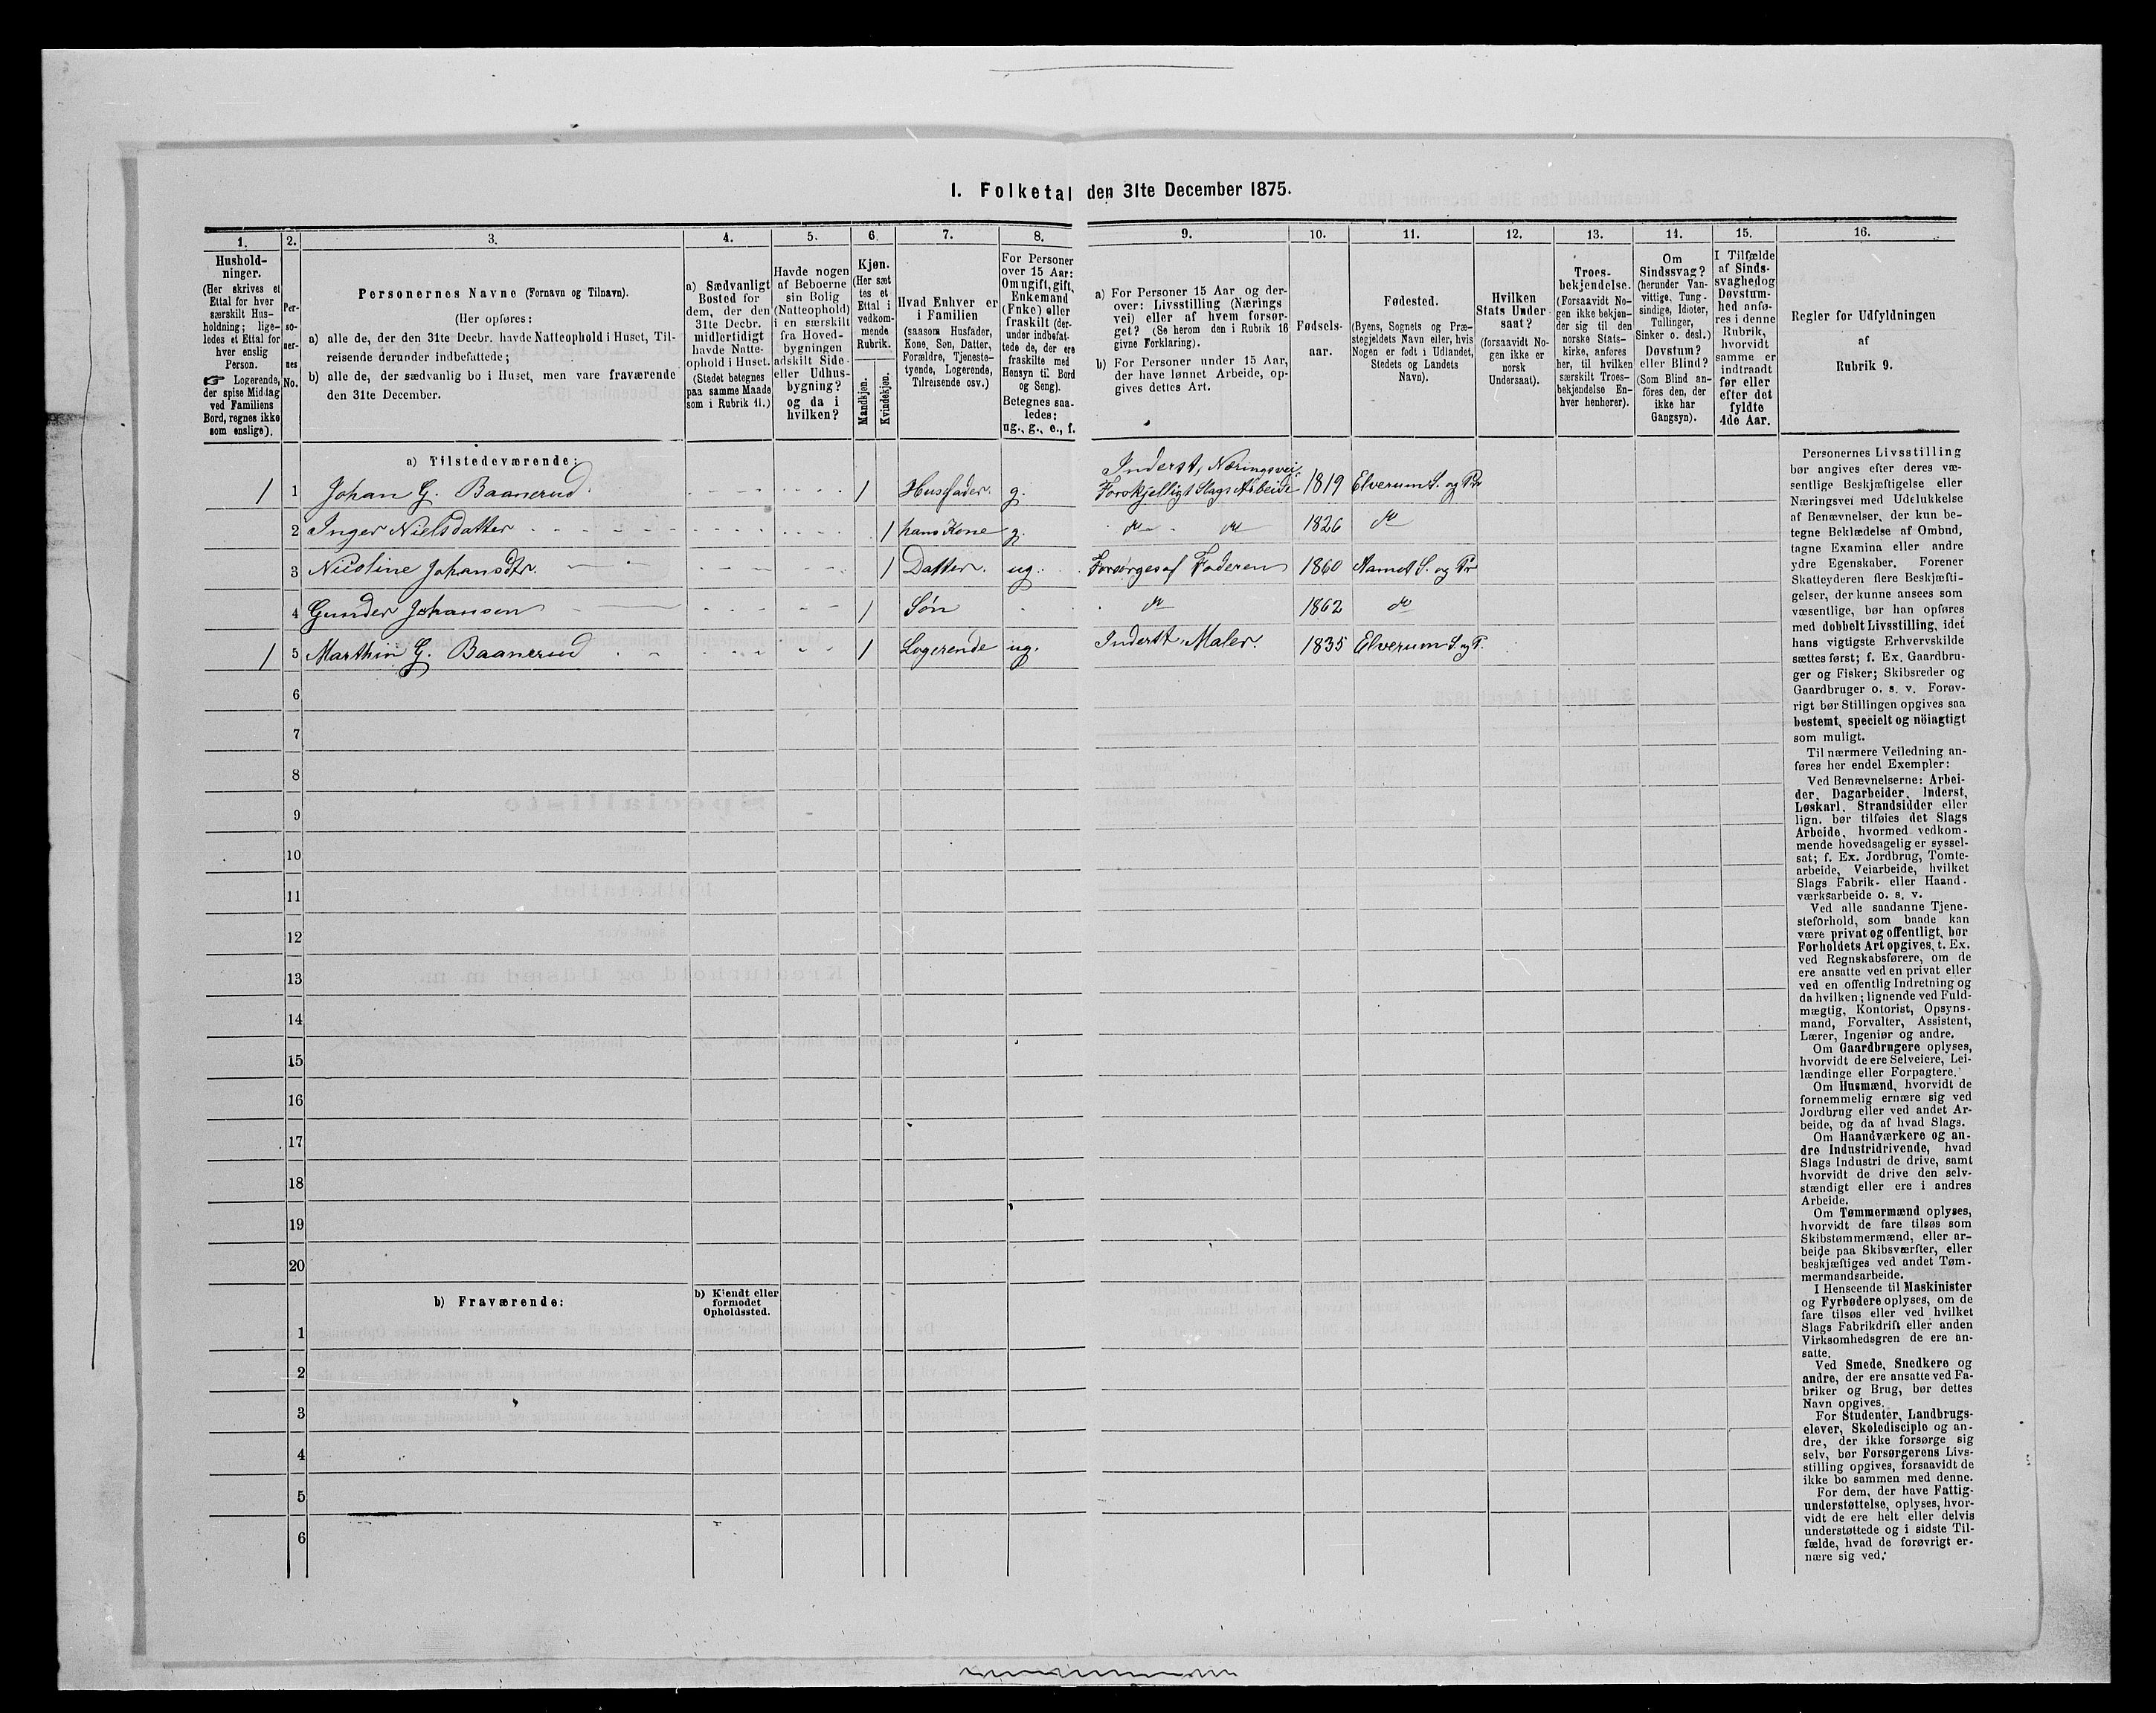 I. Folketal den 31te December 1875.
1.
Hushold-
ninger.
(Her skrives et
Ettal for hver
særskilt Hus-
holdning; lige-
ledes et Ettal for
hver enslig
Person.
☞ Logerende,
der spise Middag
ved Familiens
Bord, regnes ikke
som enslige).
2.
Per-
so-
ner-
nes
No.
3.
Personernes Navne (Fornavn og Tilnavn).
(Her opføres:
a) alle de, der den 31te Decbr. havde Natteophold i Huset, Til-
reisende derunder indbefattede;
b) alle de, der sædvanlig bo i Huset, men vare fraværende
den 31te December.
4.
a) Sædvanligt
Bosted for
dem, der den
31te Decbr.
midlertidigt
havde Natte-
ophold i Huset.
(Stedet betegnes
paa samme Maade
som i Rubrik 11.)
5.
Havde nogen
af Beboerne
sin Bolig
(Natteophold)
i en særskilt
fra Hoved-
bygningen
adskilt Side-
eller Udhus-
bygning?
og da i
hvilken?
6.
Kjøn.
(Her sæt
tes et
Ettal i
vedkom-
mende
Rubrik.
Mandkjøn.
Kvindekjøn.
7.
Hvad Enhver er
i Familien
(saasom Husfader,
Kone, Søn, Datter,
Forældre, Tjeneste-
tyende, Logerende,
Tilreisende osv.)
8.
For Personer
over 15 Aar:
Om ugift, gift,
Enkemand
(Enke) eller
fraskilt (der-
under indbefat-
tede de, der ere
fraskilte med
Hensyn til Bord
og Seng).
Betegnes saa-
ledes:
ug., g., e., f.
9.
a) For Personer 15 Aar og der-
over: Livsstilling (Nærings
vei) eller af hvem forsør-
get? (Se herom den i Rubrik 16
givne Forklaring).
b) For Personer under 15 Aar,
der have lønnet Arbeide, op-
gives dettes Art.
10.
Fødsels-
aar.
11.
Fødested.
(Byens, Sognets og Præ-
stegjeldets Navn eller, hvis
Nogen er født i Udlandet,
Stedets og Landets
Navn).
12.
Hvilken
Stats Under
saat?
(forsaavidt No-
gen ikke er
norsk
Undersaat).
13.
Troes-
bekjendelse.
(Forsaavidt No-
gen ikke bekjen-
der sig til den
norske Stats-
kirke, anføres
her, til hvilken
særskilt Troes-
bekjendelse En-
hver henhører).
14.
Om
Sindssvag?
(herunder Van-
vittige, Tung-
sindige, Idioter,
Tullinger,
Sinker o. desl.)
Døvstum?
eller Blind?
(Som Blind an-
føres den, der
ikke har
Gangsyn).
15.
I Tilfælde
af Sinds-
svaghed og
Døvstum-
hed anfø-
res i denne
Rubrik,
hvorvidt
samme er
indtraadt
før eller
efter det
fyldte
4de Aar.
16.
Regler for Udfyldningen
af
Rubrik 9.
a) Tilstedeværende:
1 1 Johan G. Baanerud 1 Husfader. g. Inderst, Næringsvei, Forskjelligt Slags Arbeide 1819 Elverum S. og Pr
2 Inger Nielsdatter 1 hans Kone g. do do 1826 do
3 Nicoline Johansdtr. 1 Datter. ug. Forsørges af Faderen 1860 Aamot S. og Pr
4 Gunder Johansen 1 Søn do 1862 do
1 5 Marthin G. Baanerud 1 Logerende ug. Inderst Maler. 1835 Elverum S. og P.
6
7
8
9
10
11
12
13
14
15
16
17
18
19
20
b) Fraværende:
b) Kjendt eller
formodet
Opholdssted.
1
2
3
4
5
6
Personernes Livsstilling
bør angives efter deres væ-
sentlige Beskjæftigelse eller
Næringsvei med Udelukkelse
af Benævnelser, der kun be-
tegne Beklædelse af Ombud,
tagne Examina eller andre
ydre Egenskaber. Forener
Skatteyderen flere Beskjæfti-
gelser, der kunne ansees som
væsentlige, bør han opføres
med dobbelt Livsstilling, idet
hans vigtigste Erhvervskilde
sættes først; f. Ex. Gaardbru-
ger og Fisker; Skibsreder og
Gaardbruger o. s. v. Forøv-
rigt bør Stillingen opgives saa
bestemt, specielt og nöiagtigt
som muligt.
Til nærmere Veiledning an-
føres her endel Exempler:
Ved Benævnelserne: Arbei-
der, Dagarbeider, Inderst,
Løskarl, Strandsidder eller
lign. bør tilføies det Slags
Arbeide, hvormed vedkom-
mende hovedsagelig er syssel-
sat; f. Ex. Jordbrug, Tomte-
arbeide, Veiarbeide, hvilket
Slags Fabrik- eller Haand-
værksarbeide o. s. v.
Ved alle saadanne Tjene-
steforhold, som baade kan
være privat og offentligt, bør
Forholdets Art opgives, t. Ex.
ved Regnskabsførere, om de
ere ansatte ved en privat eller
ved en offentlig Indretning og
da hvilken; lignende ved Fuld-
mægtig, Kontorist, Opsyns-
mand, Forvalter, Assistent,
Lærer, Ingeniør og andre.
Om Gaardbrugere oplyses,
hvorvidt de ere Selveiere, Lei-
lændinge eller Forpagtere.
Om Husmænd, hvorvidt de
fornemmelig ernære sig ved
Jordbrug eller ved andet Ar-
beide, og da af hvad Slags.
Om Haandværkere og an-
dre Industridrivende, hvad
Slags Industri de drive, samt
hvorvidt de drive den selv-
stændigt eller ere i andres
Arbeide.
Om Tømmermænd oplyses,
hvorvidt de fare tilsøs som
Skibstømmermænd, eller ar-
beide paa Skibsværfter, eller
beskjæftiges ved andet Tøm-
mermandsarbeide.
I Henseende til Maskinister
og Fyrbødere oplyses, om de
fare tilsøs eller ved hvilket
Slags Fabrikdrift eller anden
Virksomhedsgren de ere an-
satte.
Ved Smede, Snedkere og
andre, der ere ansatte ved Fa-
briker og Brug, bør dettes
Navn opgives.
For Studenter, Landbrugs-
elever, Skoledisciple og an-
dre, der ikke forsørge sig
selv, bør Forsørgerens Livs-
stilling opgives, forsaavidt de
ikke bo sammen med denne.
For dem, der have Fattig-
understøttelse, oplyses, hvor-
vidt de ere helt eller delvis
understøttede og i sidste Til-
fælde, hvad de forøvrigt er-
nære sig ved.